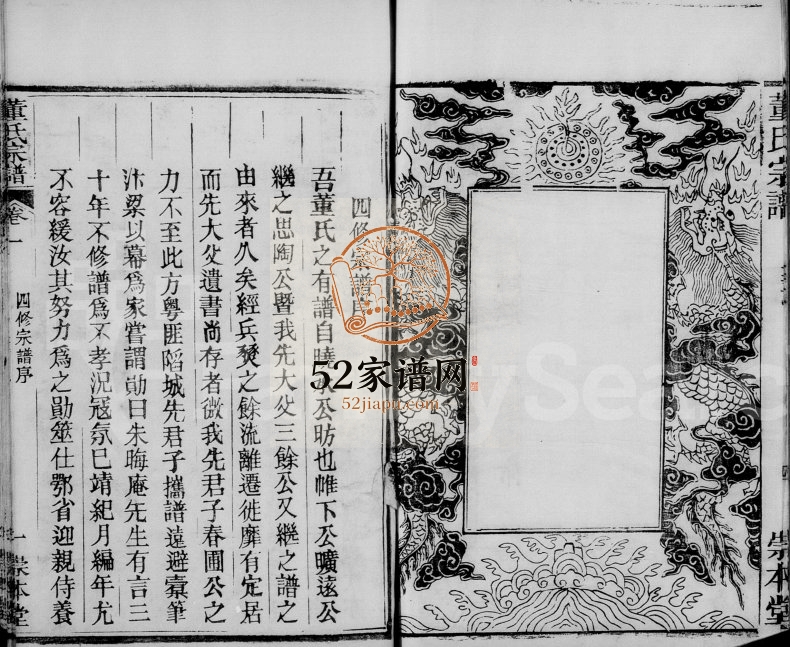 董氏宗譜
崇本堂
四修宗譜序
吾董氏之有譜自曉 公昉也帷下公曠遠公
繼之思陶公暨我先大父三餘公又繼之譜之
由來者久矣經兵燹之餘流離遷徙靡有定居
而先大父遺書尚存者微我先君子春圃公之
力不至此方粵匪陷城先君子攜譜遠避橐筆
汴梁以幕爲家嘗謂勛曰朱晦庵先生有言三
十年不修譜爲不孝況冦氛已靖紀月編年尤
不容緩汝其努力爲之勛筮仕鄂省迎親侍養
董氏宗譜
卷一
四修宗譜序
一
崇本堂
52家谱网
52jiapu.com